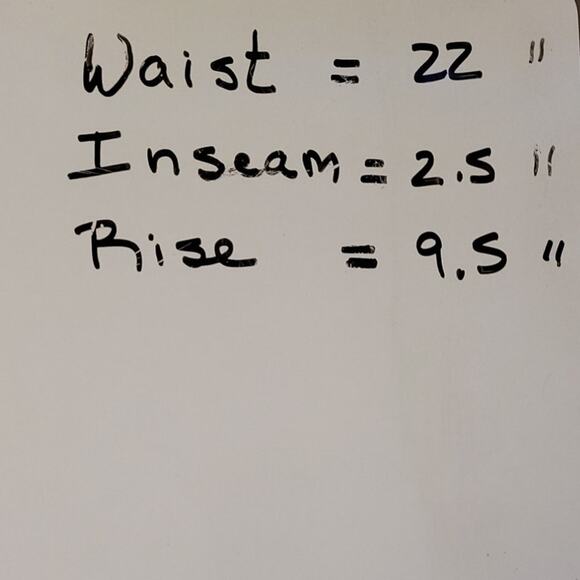 Waist = 22 "
Inseam = 2.5 "
Rise = 9.5 "